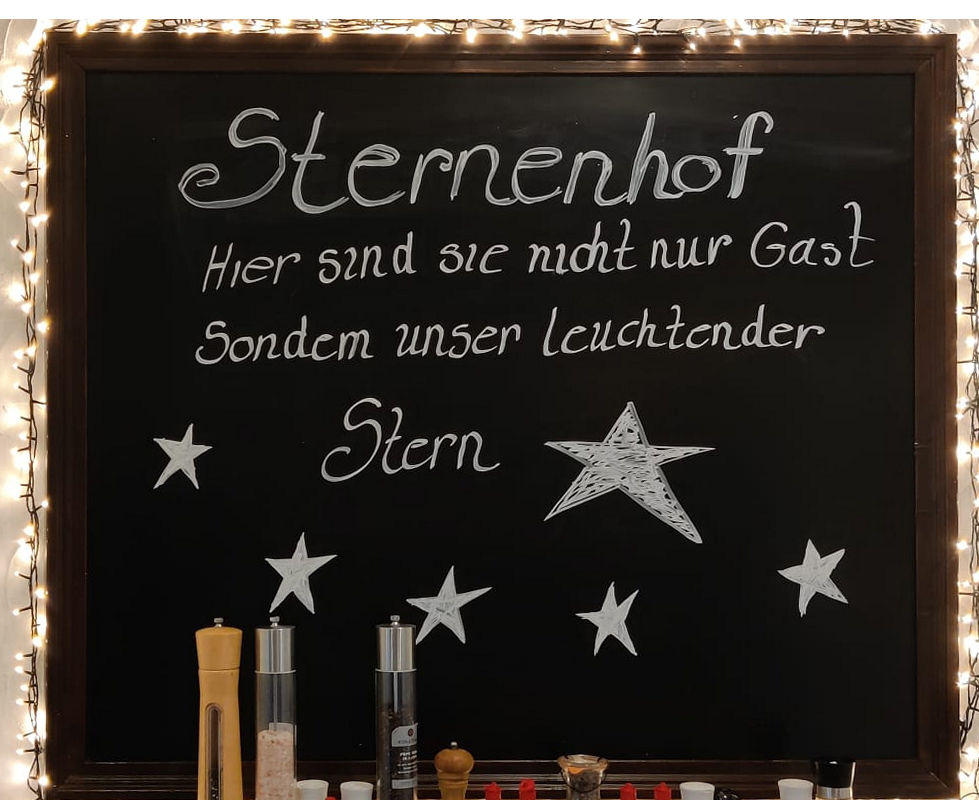 Sternenhof
Hier sind sie nicht nur Gast
Sondern unser leuchtender
Stern